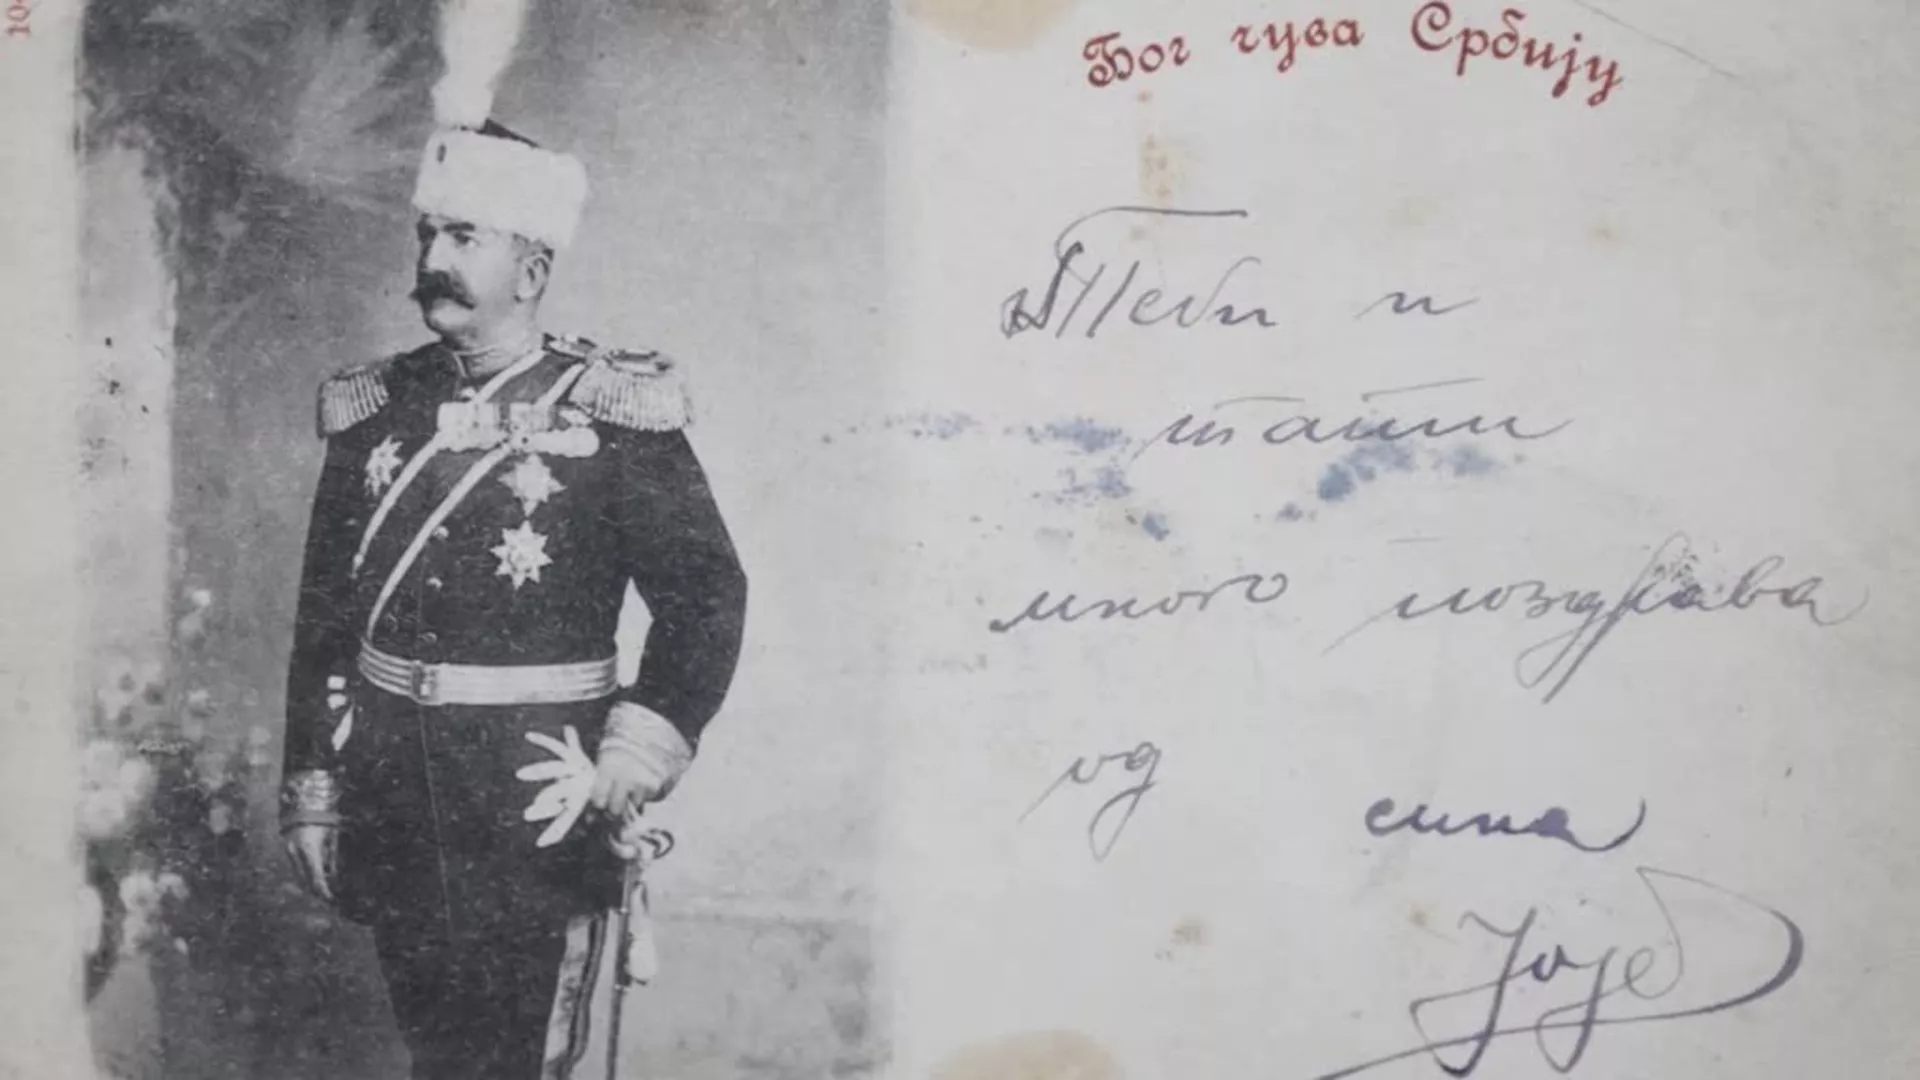 Бог чува Србију
Теби и
тати
много поздрава
од сина